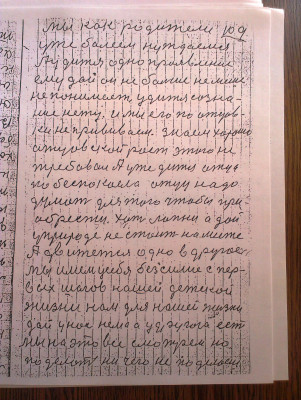 Мы как родители 109
уже болеем нуждаемся
А у дитя одно проявление
ему дай он не более не менее
не понимает, у дитя созна-
ние нету. и мы его по отцов-
ки не прививаем. знаем хорошо
отцовский рост этого не
требовал А уже дитя отца
побеспокоела отцу надо
думать для того чтобы при-
обрести. Хуть лапти а дай
у природе не стоит на месте
А двигается одно в другое
мы имеем у себя безсилие с пер-
вых шагов нашей детской
жизни нам для нашей жизни
дай у нас нема а у другого есть
мы на это все смотрем но
поделать ни чего не поделаеш